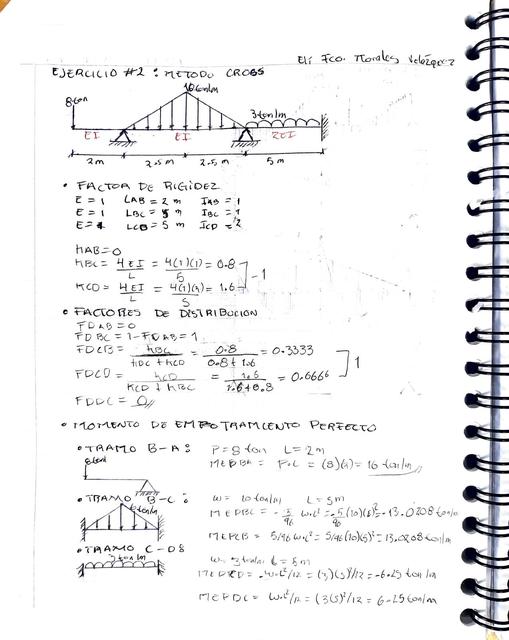 Elí Fco. Morales Velázquez
EJERCICIO #2 : METODO CROSS
10 ton/m
8 ton
3 ton/m
EI EI 2EI
2m 2.5m 2.5m 5m
• FACTOR DE RIGIDEZ
E = 1 LAB = 2 m IAB = 1
E = 1 LBC = 5 m IBC = 1
E = 1 LCD = 5 m ICD = 2
KAB = 0
KBC = 4EI/L = 4(1)(1)/5 = 0.8
KCD = 4EI/L = 4(1)(2)/5 = 1.6
1
• FACTORES DE DISTRIBUCION
FDAB = 0
FDBC = 1 - FDAB = 1
FDCB = KBC/KBC + KCD = 0.8/0.8 + 1.6 = 0.3333
FDCD = KCD/KCD + KBC = 1.6/1.6 + 0.8 = 0.6666
1
FDDC = 0
• MOMENTO DE EMPOTRAMIENTO PERFECTO
• TRAMO B-A : P = 8 ton L = 2m
8 ton
MEPBA = P·L = (8)(2) = 16 ton/m
• TRAMO B-C : w = 10 ton/m L = 5m
10 ton/m
MEPBC = -5/96 w·L² = -5/96 (10)(5)² = -13.0208 ton/m
MEPCB = 5/96 w·L² = 5/96 (10)(5)² = 13.0208 ton/m
• TRAMO C-D : w = 3 ton/m L = 5m
3 ton/m
MEPCD = -w·L²/12 = (3)(5)²/12 = -6.25 ton/m
MEPDC = w·L²/12 = (3(5)²/12 = 6.25 ton/m